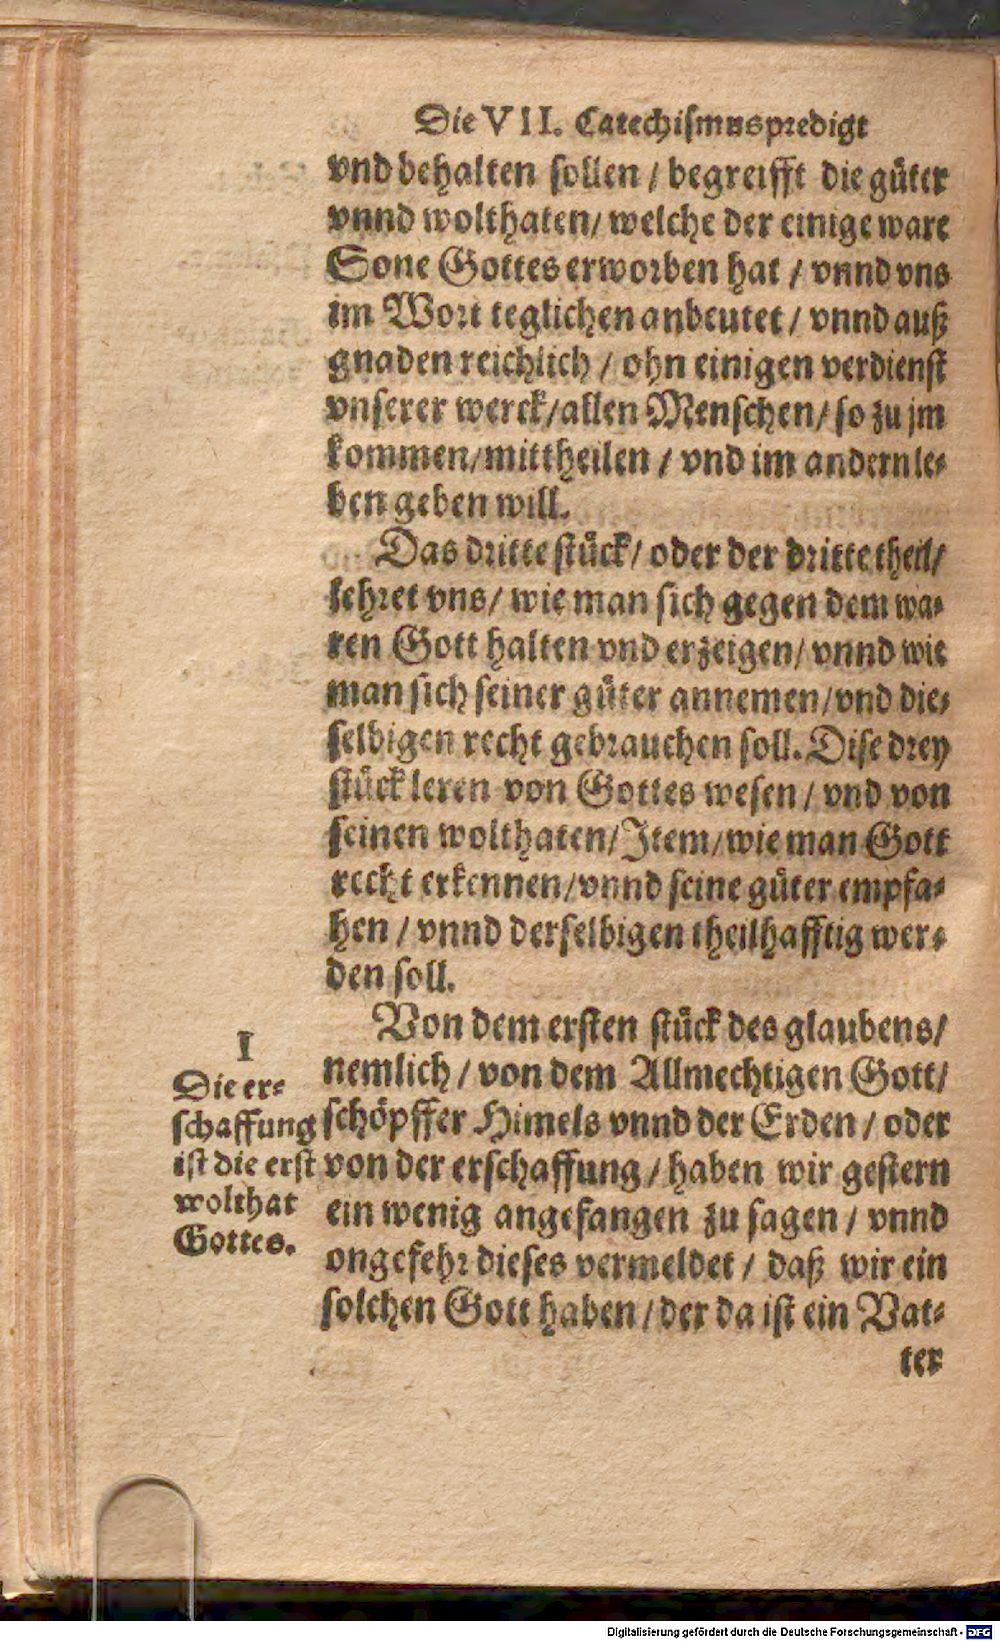 Die VII. Catechismuspredigt
vnd behalten sollen / begreifft die güter
vnnd wolthaten / welche der einige ware
Sone Gottes erworben hat / vnnd vns
im Wort teglichen anbeutet / vnnd auß
gnaden reichlich / ohn einigen verdienst
vnserer werck / allen Menschen / so zu jm
kommen / mittheilen / vnd im andern le-
ben geben will.
Das dritte stück / oder der dritte theil /
lehret vns / wie man sich gegen dem wa-
ren Gott halten vnd erzeigen / vnnd wie
man sich seiner güter annemen / vnd die-
selbigen recht gebrauchen soll. Dise drey
stück leren von Gottes wesen / vnd von
seinen wolthaten / Item / wie man Gott
recht erkennen / vnnd seine güter empfa-
hen / vnnd derselbigen theilhafftig wer-
den soll.
I
Die er-
schaffung
ist die erst
wolthat
Gottes.
Von dem ersten stück des glaubens /
nemlich / von dem Allmechtigen Gott /
schöpffer Himels vnnd der Erden / oder
von der erschaffung / haben wir gestern
ein wenig angefangen zu sagen / vnnd
ongefehr dieses vermeldet / daß wir ein
solchen Gott haben / der da ist ein Vat-
ter
Digitalisierung gefördert durch die Deutsche Forschungsgemeinschaft - DFG